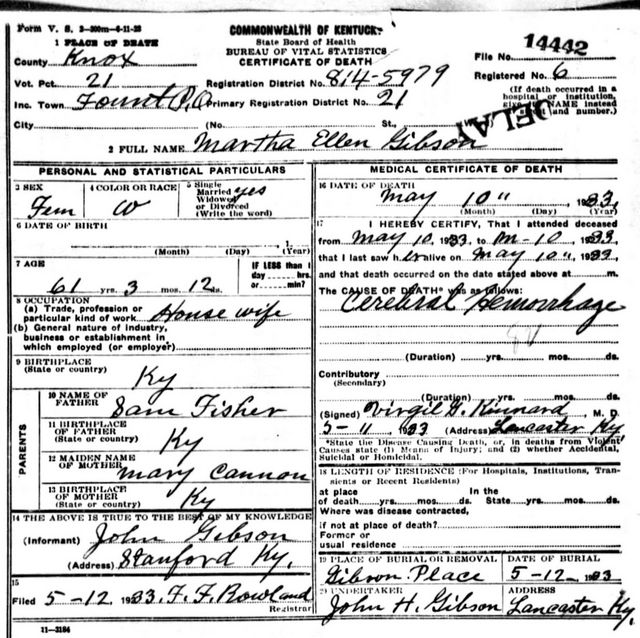 Form V. S. 2-300m-4-11-28
COMMONWEALTH OF KENTUCKY
State Board of Health
BUREAU OF VITAL STATISTICS
CERTIFICATE OF DEATH
1 PLACE OF DEATH
County Knox
File No. 14442
Vot. Pct. 21
Registration District No. 814-5979
Registered No. 6
Inc. Town Fount P.O. Primary Registration District No. 21
(If death occurred in a
hospital or institution,
NAME instead
and number.)
DELAY
City (No. St.,
2 FULL NAME Martha Ellen Gibson
PERSONAL AND STATISTICAL PARTICULARS
3 SEX
Fem
4 COLOR OR RACE
W
5 Single
Married yes
Widowed
or Divorced
(Write the word)
6 DATE OF BIRTH
(Month) (Day) (Year)
7 AGE
61 yrs. 3 mos. 12 ds.
IF LESS than 1
day ... hrs.
or ... min.?
8 OCCUPATION
(a) Trade, profession or
particular kind of work House wife
(b) General nature of industry,
business or establishment in
which employed (or employer)
9 BIRTHPLACE
(State or country)
Ky
PARENTS
10 NAME OF
FATHER
Sam Fisher
11 BIRTHPLACE
OF FATHER
(State or country)
Ky
12 MAIDEN NAME
OF MOTHER
Mary Cannon
13 BIRTHPLACE
OF MOTHER
(State or country)
Ky
14 THE ABOVE IS TRUE TO THE BEST OF MY KNOWLEDGE
(Informant) John Gibson
(Address) Stanford Ky.
15
Filed 5-12 1933. F. F. Rowland
Registrar
11-3184
MEDICAL CERTIFICATE OF DEATH
16 DATE OF DEATH
May 10" 1933
(Month) (Day) (Year)
17 I HEREBY CERTIFY, That I attended deceased
from May 10 1933, to M-10 1933,
that I last saw her alive on May 10" 1933,
and that death occurred on the date stated above at m.
The CAUSE OF DEATH* was as follows:
Cerebral Hemorrhage
(Duration) yrs. mos. ds.
Contributory
(Secondary)
(Duration) yrs. mos. ds.
(Signed) Virgil G. Kinnard, M. D.
5-11 1933 (Address) Lancaster Ky
*State the Disease Causing Death, or, in deaths from Violent
Causes state (1) Means of Injury; and (2) whether Accidental,
Suicidal or Homicidal.
18 LENGTH OF RESIDENCE (For Hospitals, Institutions, Tran-
sients or Recent Residents)
at place In the
of death yrs. mos. ds. State yrs. mos. ds.
Where was disease contracted,
if not at place of death?
Former or
usual residence
19 PLACE OF BURIAL OR REMOVAL
Gibson Place
DATE OF BURIAL
5-12- 1933
20 UNDERTAKER
John H. Gibson
ADDRESS
Lancaster Ky.